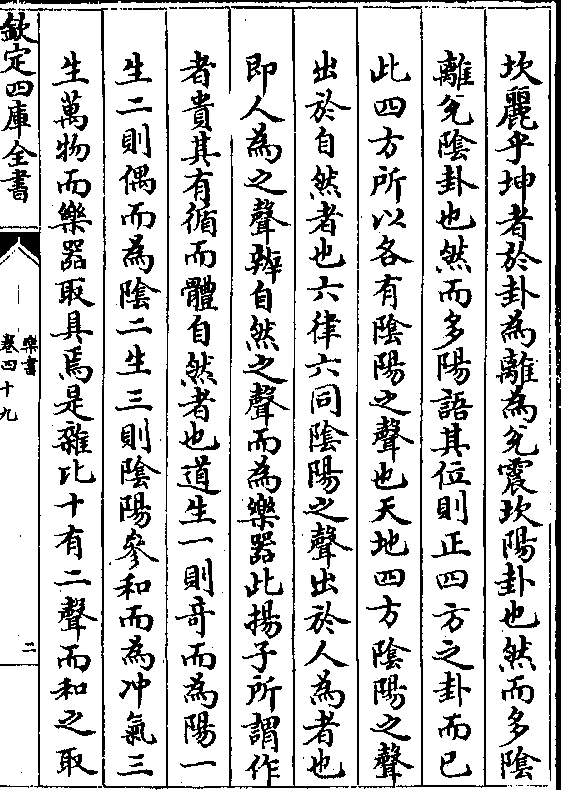 坎麗乎坤者於卦為離為兌震坎陽卦也然而多陰
離兌陰卦也然而多陽語其位則正四方之卦而已
此四方所以各有陰陽之聲也天地四方陰陽之聲
出於自然者也六律六同陰陽之聲出於人為者也
即人為之聲辨自然之聲而為樂器此揚子所謂作
者貴其有循而體自然者也道生一則竒而為陽一
生二則偶而為陰二生三則陰陽參和而為冲氣三
生萬物而樂器取具焉是雜比十有二聲而和之取
欽定四庫全書
樂書
卷四十九
二